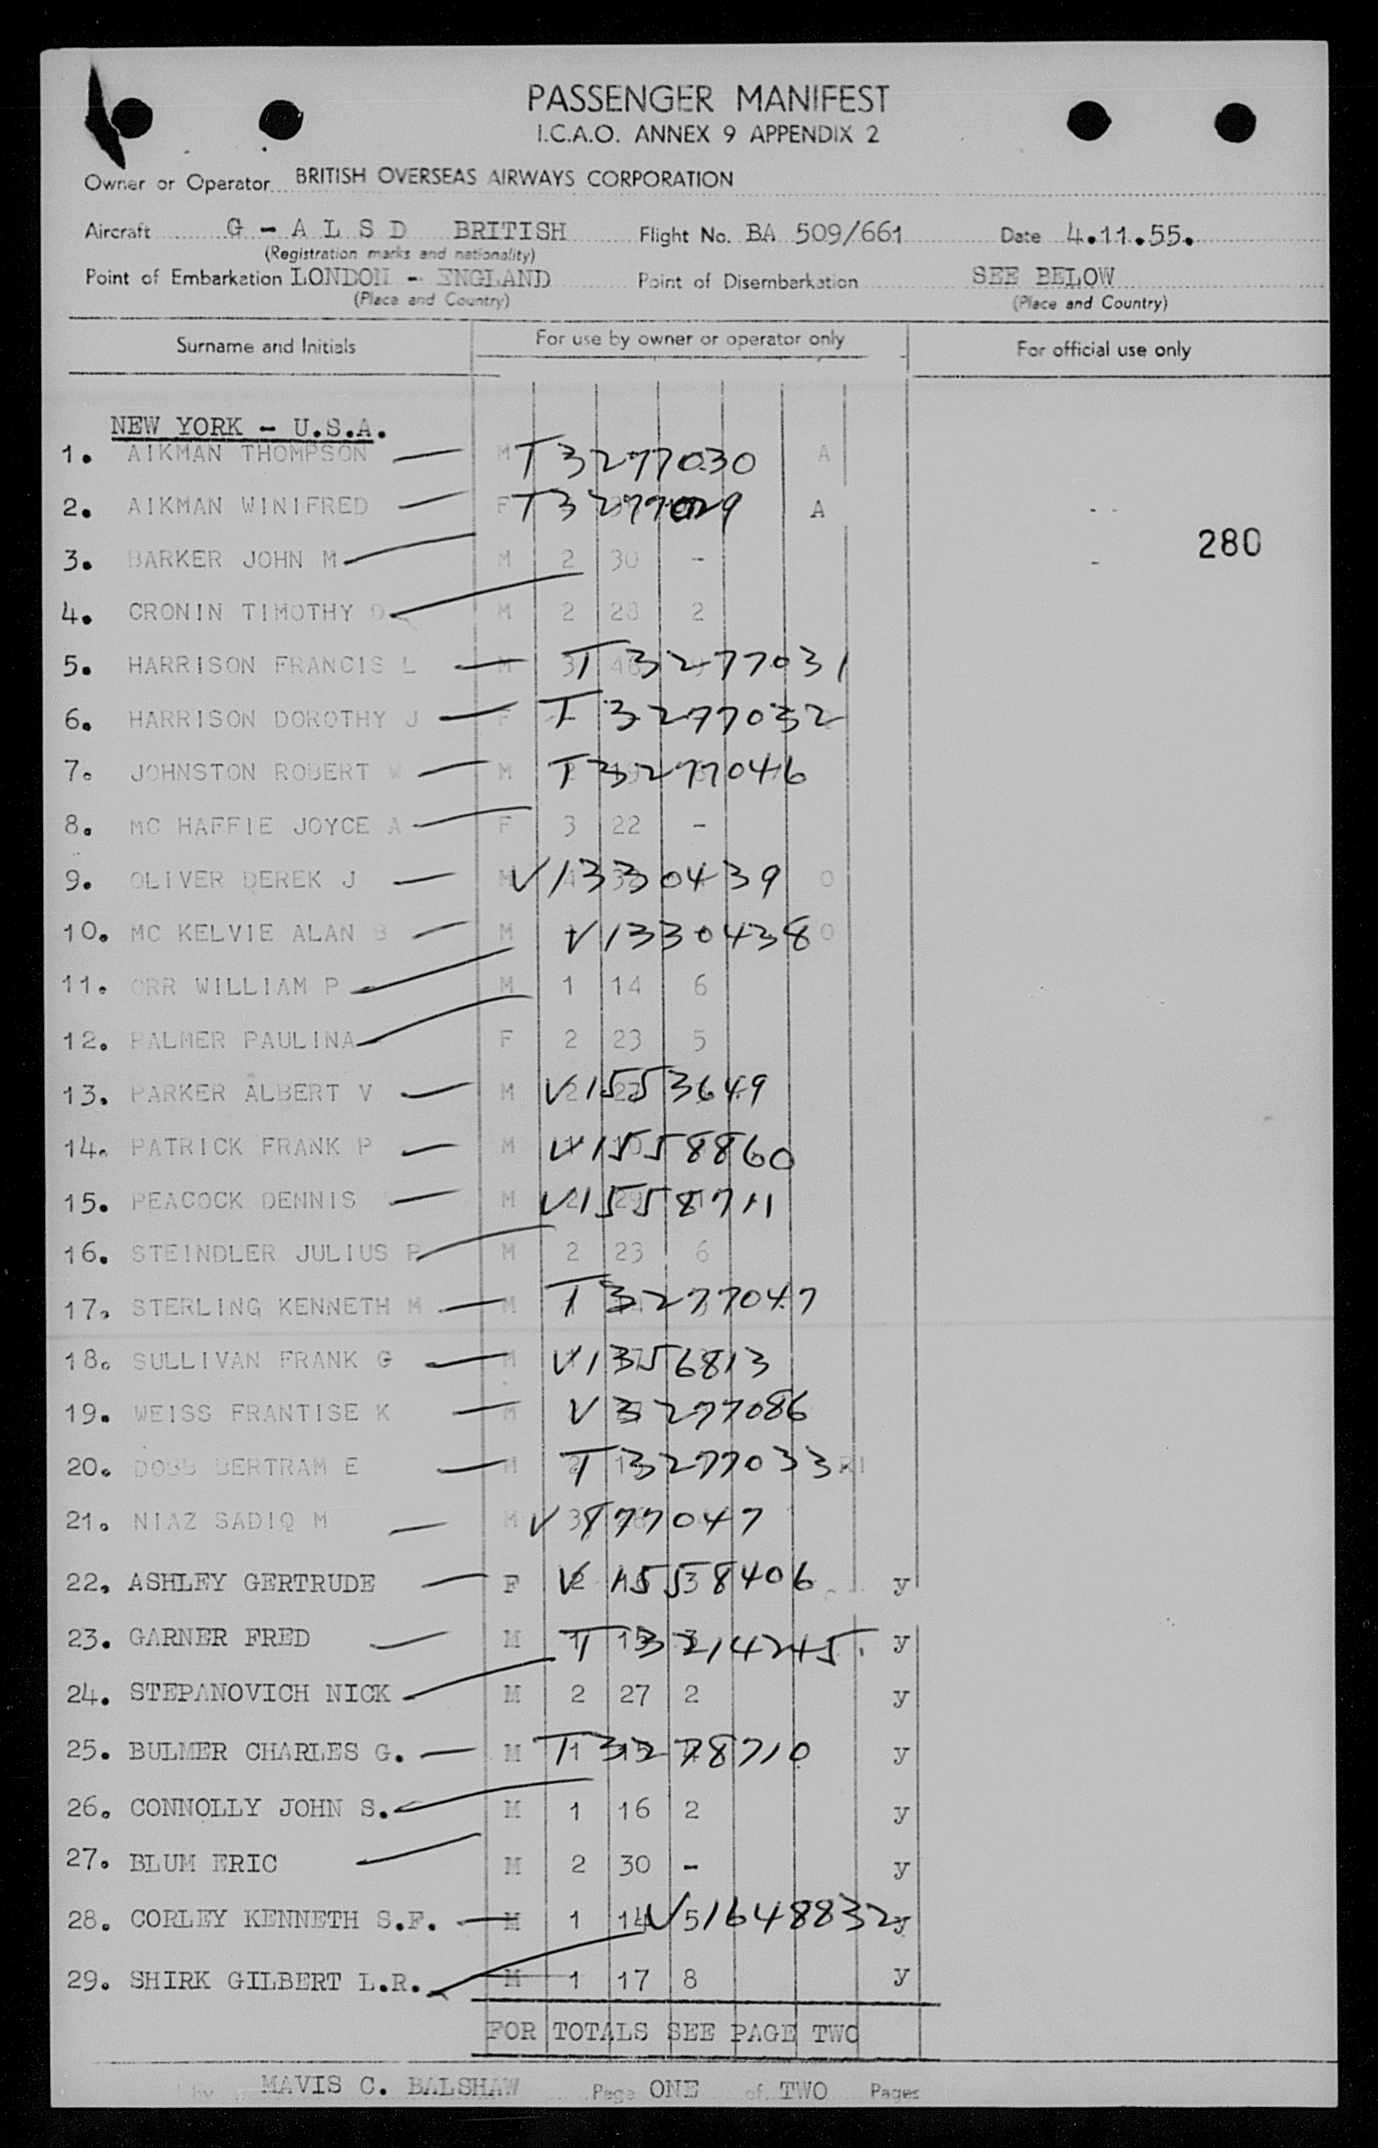 PASSENGER MANIFEST
I.C.A.O. ANNEX 9 APPENDIX 2
Owner or Operator BRITISH OVERSEAS AIRWAYS CORPORATION
Aircraft G - A L S D BRITISH Flight No. BA 509/661 Date 4.11.55.
(Registration marks and nationality)
Point of Embarkation LONDON - ENGLAND Point of Disembarkation SEE BELOW
(Place and Country) (Place and Country)
Surname and Initials For use by owner or operator only For official use only
NEW YORK - U.S.A.
1. AIKMAN THOMPSON M T 3277030 A
2. AIKMAN WINIFRED F T 3277029 A
280
3. BARKER JOHN M M 2 30 -
4. CRONIN TIMOTHY D M 2 28 2
5. HARRISON FRANCIS L M T 3277031
6. HARRISON DOROTHY J F T 3277032
7. JOHNSTON ROBERT W M T 3277046
8. MC HAFFIE JOYCE A F 3 22 -
9. OLIVER DEREK J M V 1330439 O
10. MC KELVIE ALAN B M V 1330438 O
11. ORR WILLIAM P M 1 14 6
12. PALMER PAULINA F 2 23 5
13. PARKER ALBERT V M V 1553649
14. PATRICK FRANK P M V 1558860
15. PEACOCK DENNIS M V 1558711
16. STEINDLER JULIUS P M 2 23 6
17. STERLING KENNETH M M T 3277047
18. SULLIVAN FRANK G M V 1356813
19. WEISS FRANTISE K M V 3277086
20. DOBB BERTRAM E M T 3277033
21. NIAZ SADIQ M M V 877047
22. ASHLEY GERTRUDE F V 1558406 y
23. GARNER FRED M T 3214245. y
24. STEPANOVICH NICK M 2 27 2 y
25. BULMER CHARLES G. M T 3278710 y
26. CONNOLLY JOHN S. M 1 16 2 y
27. BLUM ERIC M 2 30 - y
28. CORLEY KENNETH S.F. M 1 14 5 V 1648832 y
29. SHIRK GILBERT L.R. M 1 17 8 y
FOR TOTALS SEE PAGE TWO
by MAVIS C. BALSHAW Page ONE of TWO Pages